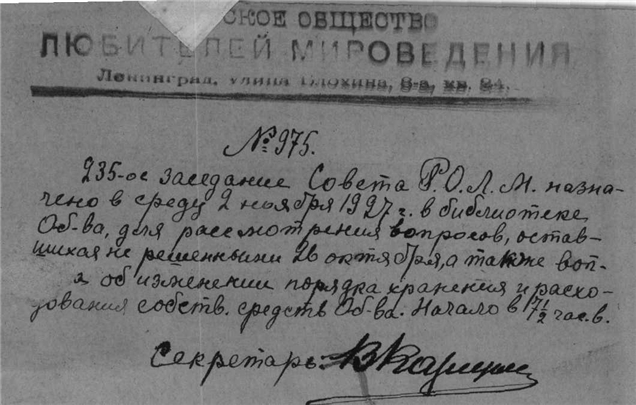 СКОЕ ОБЩЕСТВО
ЛЮБИТЕЛЕЙ МИРОВЕДЕНИЯ
Ленинград, улица Блохина, 8-а, кв. 24.
№ 975.
235-ое заседание Совета Р.О.Л.М. назна-
чено в среду 2 ноября 1927 г. в библиотеке
Об-ва, для рассмотрения вопросов, остав-
шихся не решенными 26 октября, а также воп-
об изменении порядка хранения и расхо-
дования собств. средств Об-ва. Начало в 17 1/2 час. в.
Секретарь: